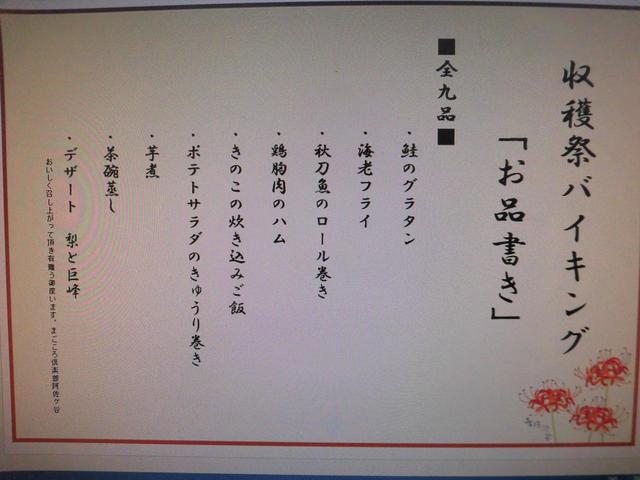 収穫祭バイキング
「お品書き」
■全九品■
・鮭のグラタン
・海老フライ
・秋刀魚のロール巻き
・鶏胸肉のハム
・きのこの炊き込みご飯
・ポテトサラダのきゅうり巻き
・芋煮
・茶碗蒸し
・デザート 梨と巨峰
おいしく召し上がって頂き有難う御座います。まごころ倶楽部阿佐ヶ谷